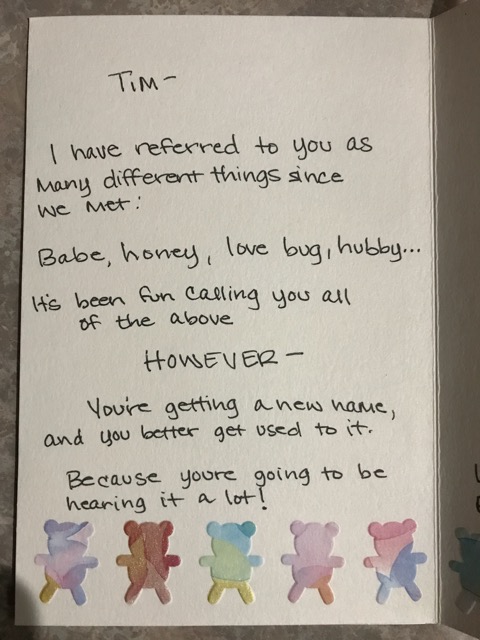 Tim-
I have referred to you as
many different things since
we met:
Babe, honey, love bug, hubby...
It's been fun calling you all
of the above
HOWEVER-
You're getting a new name,
and you better get used to it.
Because youre going to be
hearing it a lot!